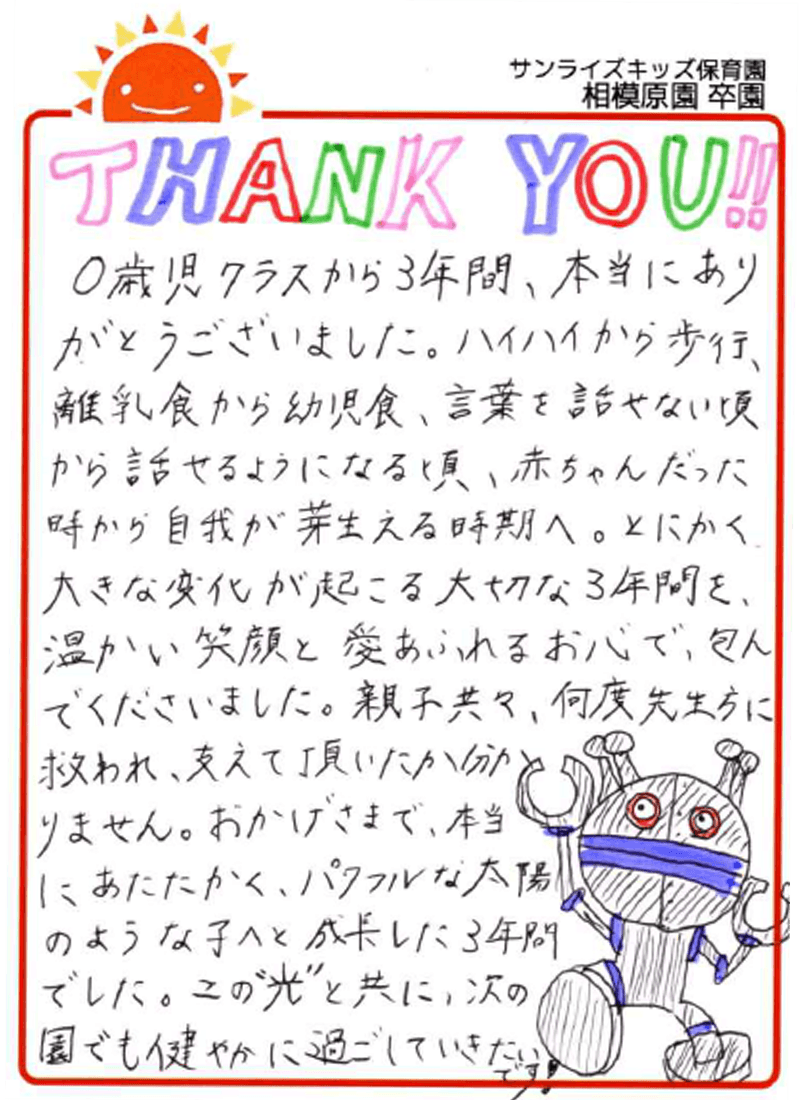 サンライズキッズ保育園
相模原園 卒園
THANK YOU!!
0歳児クラスから3年間、本当にあり
がとうございました。ハイハイから歩行、
離乳食から幼児食、言葉を話せない頃
から話せるようになる頃、赤ちゃんだった
時から自我が芽生える時期へ。とにかく
大きな変化が起こる大切な3年間を、
温かい笑顔と愛あふれるお心で、包ん
でくださいました。親子共々、何度先生方に
救われ、支えて頂いたか分か
りません。おかげさまで、本当
にあたたかく、パワフルな太陽
のような子へと成長した3年間
でした。この"光"と共に、次の
園でも健やかに過ごしていきたい
です!